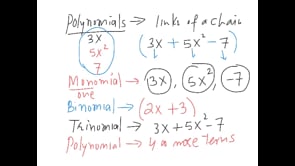 Polynomials → links of a chain
3x
5x²
7
(3x + 5x² - 7)
Monomial → 3x, 5x², -7
one
Binomial → (2x + 3)
Trinomial → 3x + 5x² - 7
Polynomial → 4 or more terms